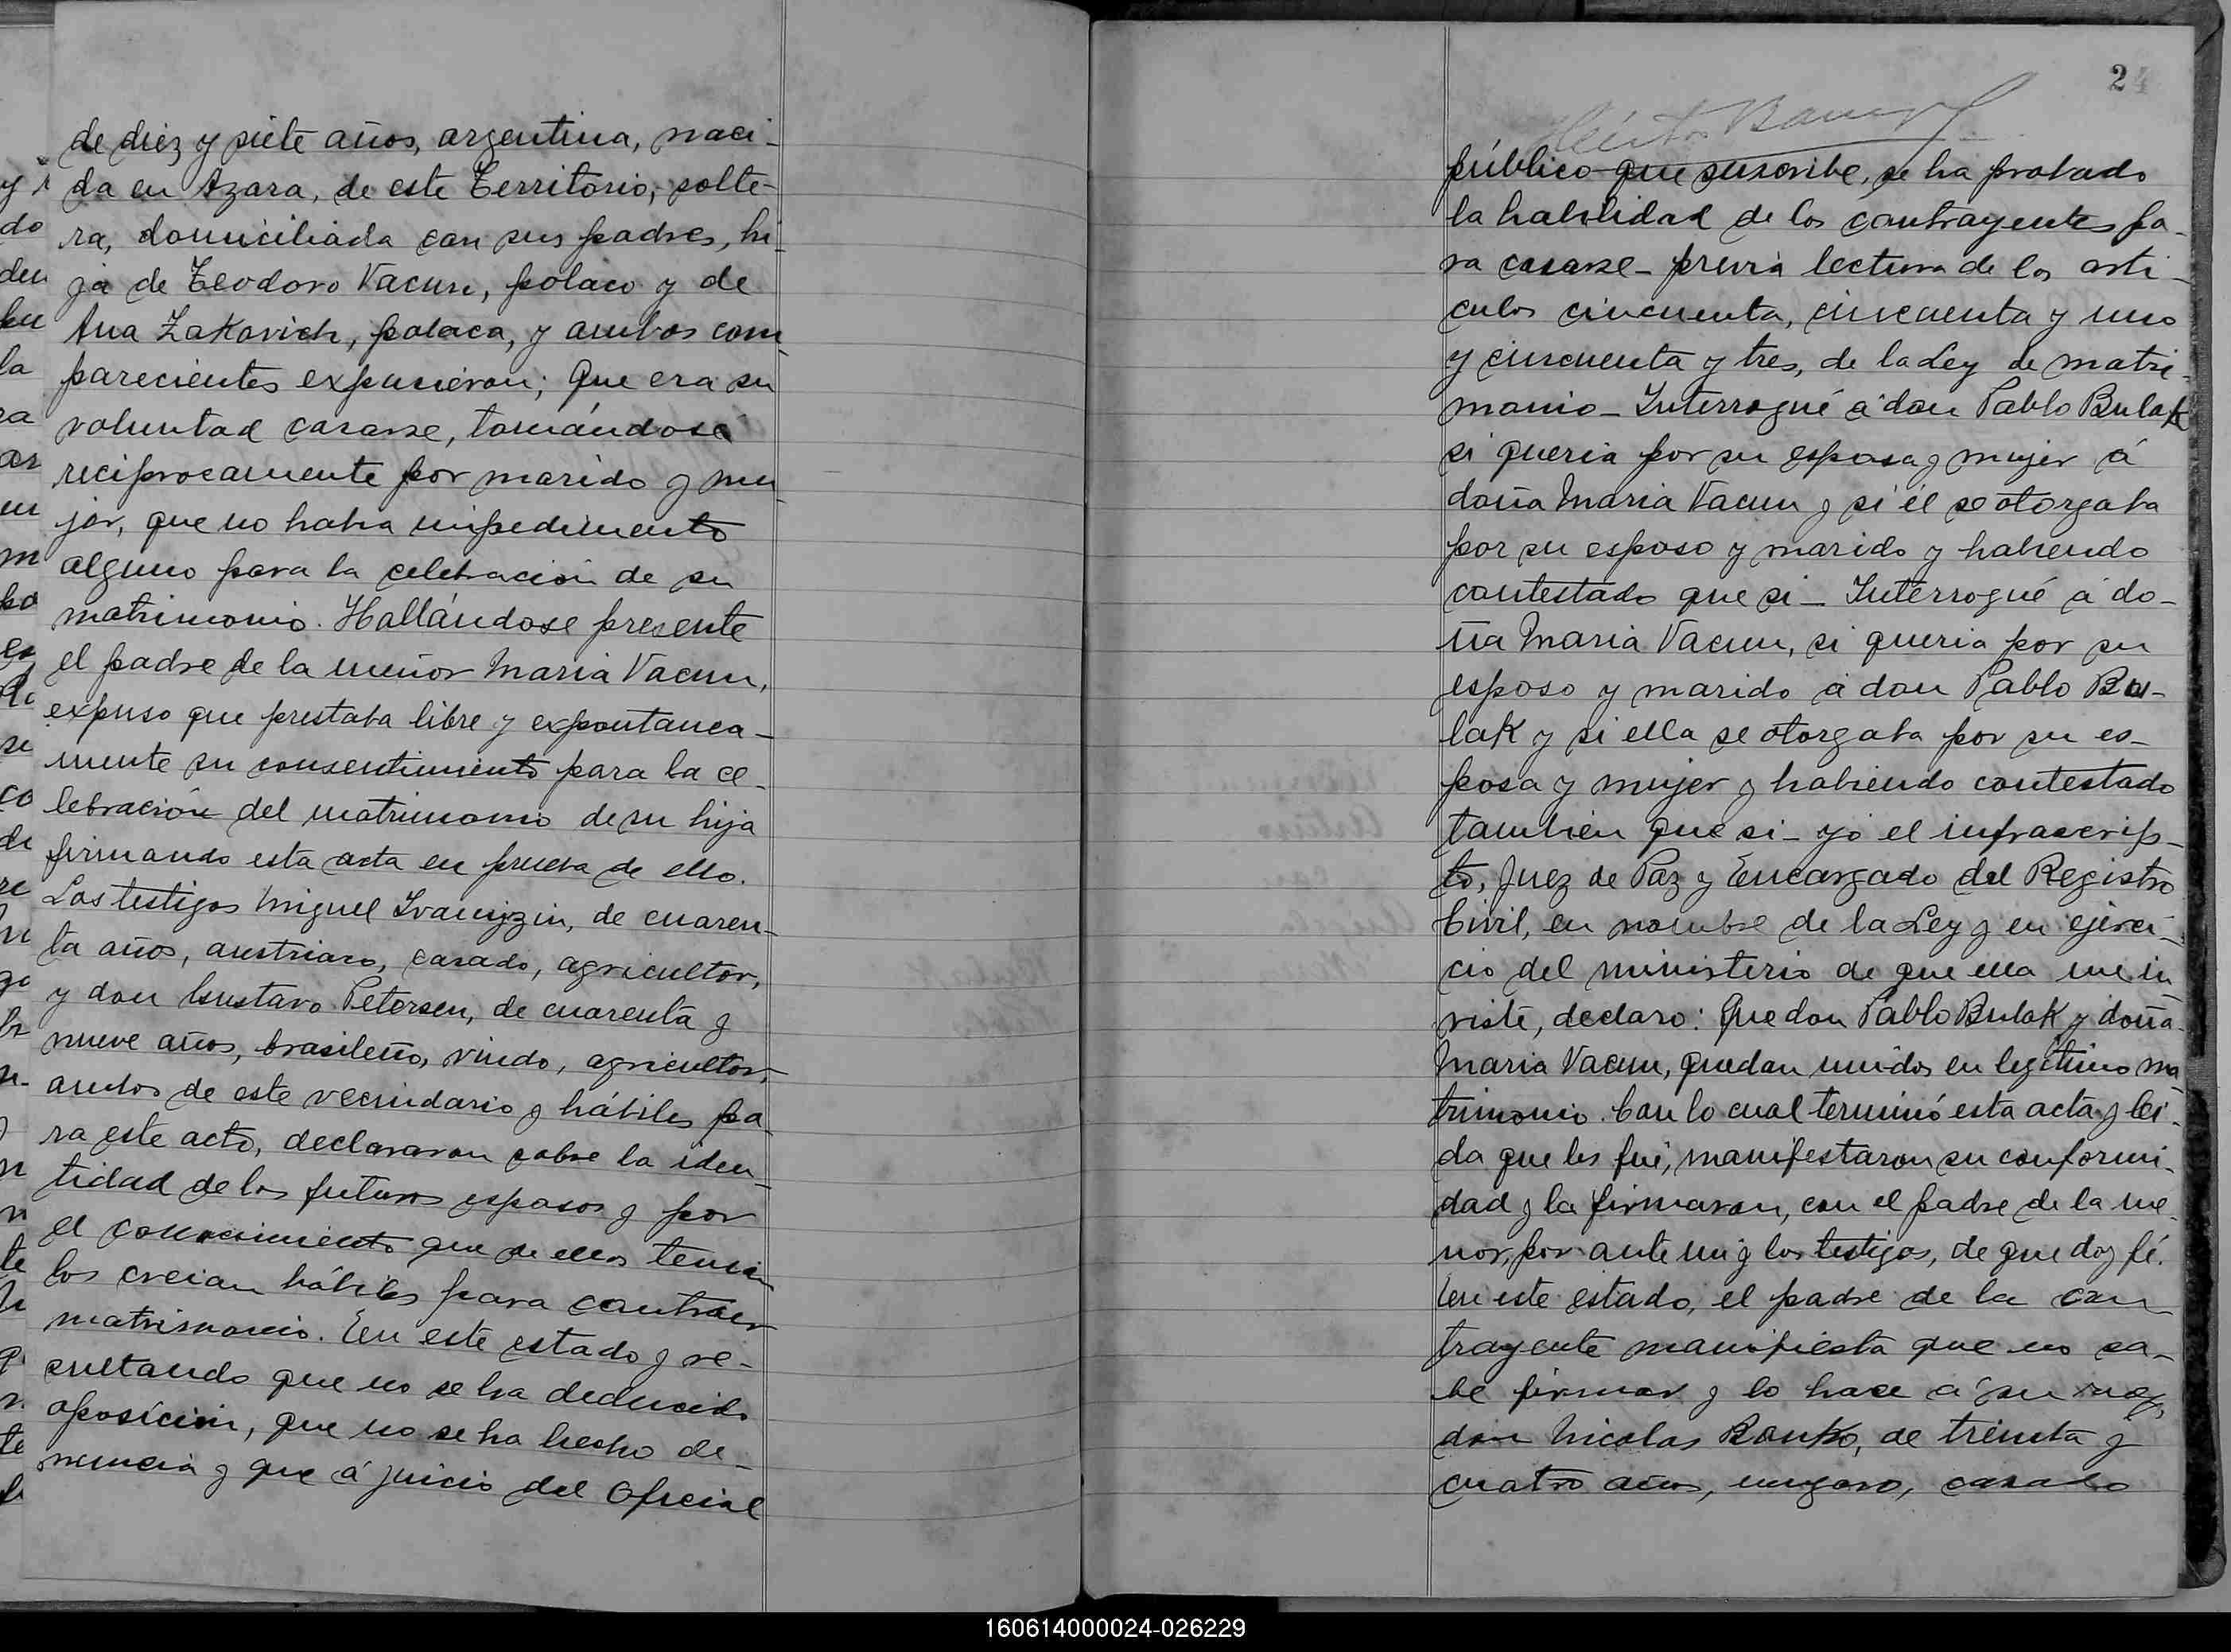 de diez y siete años, argentina, naci-
da en Azara, de este Territorio, solte-
ra, domiciliada con sus padres, hi-
ja de Teodoro Vacun, polaco y de
Ana Zakovich, polaca, y ambos com-
parecientes expusieron; Que era su
voluntad casarse, tomándose
reciprocamente por marido y mu-
jer, que no habia impedimento
alguno para la celebración de su
matrimonio. Hallándose presente
el padre de la menor Maria Vacun,
expuso que prestaba libre y expontanea-
mente su consentimiento para la ce-
lebración del matrimonio de su hija
firmando esta acta en prueba de ello.
Los testigos Miguel de cuaren-
ta años, austriaco, casado, agricultor,
y don Gustavo Petersen, de cuarenta y
nueve años, brasileño, viudo, agricultor,
ambos de este vecindario y hábiles pa-
ra este acto, declararon sobre la iden-
tidad de los futuros esposos y por
el conocimiento que de ellos tenian
los creian hábiles para contraer
matrimonio. En este estado y re-
sultando que no se ha deducido
oposición, que no se ha hecho de-
nuncia y que á juicio del Oficial
24
público que suscribe, se ha probado
la habilidad de los contrayentes pa-
ra casarse - previa lectura de los arti-
culos cincuenta, cincuenta y uno
y cincuenta y tres, de la Ley de matri-
monio - Interrogué á don Pablo Bulak
si queria por su esposa y mujer á
doña Maria Vacun y si él se otorgaba
por su esposo y marido y habiendo
contestado que si - Interrogué á do-
ña Maria Vacun, si queria por su
esposo y marido á don Pablo Bu-
lak y si ella se otorgaba por su es-
posa y mujer y habiendo contestado
tambien que si - yo el infrascrip-
to, Juez de Paz y Encargado del Registro
Civil, en nombre de la Ley y en ejerci-
cio del ministerio de que ella me in-
viste, declaro: Que don Pablo Bulak y doña
Maria Vacun, quedan unidos en legitimo ma-
trimonio. Con lo cual terminó esta acta y lei-
da que les fué, manifestaron su conformi-
dad y la firmaron, con el padre de la me-
nor, por ante mi y los testigos, de que doy fé.
En este estado, el padre de la con-
trayente manifiesta que no sa-
be firmar y lo hace á su
don Nicolas de treinta y
cuatro años, ungaro, casado
160614000024-026229